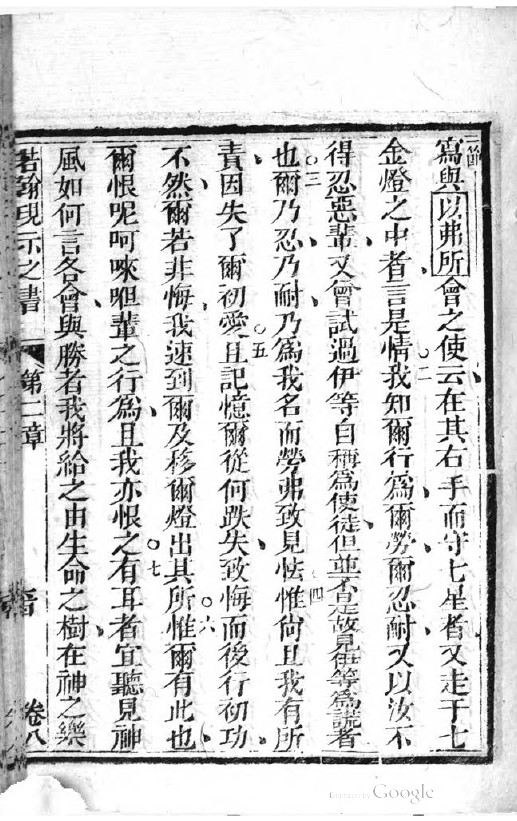 節
寫與以弗所會之使云在其右手而守七星者又走于七
金燈之中者言是情二我知爾行為爾勞爾忍耐又以汝不
得忍惡輩又曾試過伊等自稱為使徒但並不是故見伊等為謊者
也三爾乃忍乃耐乃為我名而勞弗致見怯四惟尙且我有所
責因失了爾初愛五且記憶爾從何跌失致悔而後行初功
不然爾若非悔我速到爾及移爾燈出其所六惟爾有此也
爾恨呢呵唻呾輩之行為且我亦恨之七有耳者宜聽見神
風如何言各會與勝者我將給之由生命之樹在神之樂
若翰現示之書 第二章 卷八
Digitized by Google